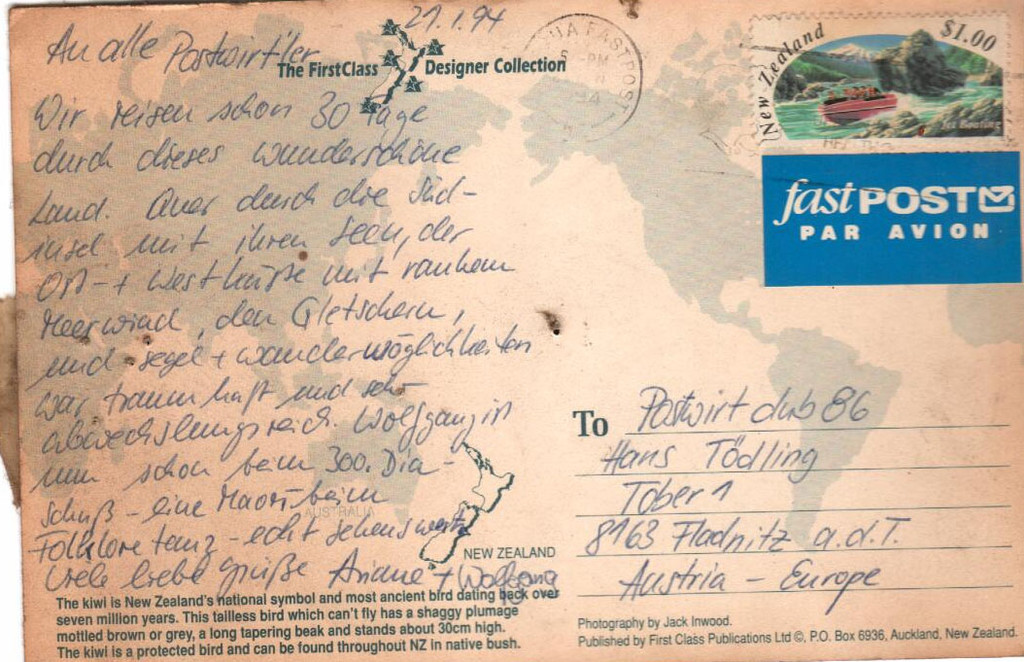 21.1.94
An alle Postwirt'ler
The FirstClass Designer Collection
Wir reisen schon 30 Tage
durch dieses wunderschöne
Land. Quer durch die Süd-
insel mit ihren Seen, der
Ost- + Westküste mit rauhem
Meerwind, den Gletschern,
und Segel + wandermöglichkeiten
war traumhaft und sehr
abwechslungsreich. Wolfgang ist
nun schon beim 300. Dia-
schuß - eine Maori beim
Folklore tanz - echt sehenswert
Viele liebe Grüße Ariane + Wolfgang
AUSTRALIA
NEW ZEALAND
The kiwi is New Zealand's national symbol and most ancient bird dating back over
seven million years. This tailless bird which can't fly has a shaggy plumage
mottled brown or grey, a long tapering beak and stands about 30cm high.
The kiwi is a protected bird and can be found throughout NZ in native bush.
FASTPOST
PM
94
New Zealand
$1.00
fast POST
PAR AVION
To Postwirt club 86
Hans Tödling
Tober 1
8163 Fladnitz a.d.T.
Austria - Europe
Photography by Jack Inwood.
Published by First Class Publications Ltd ©, P.O. Box 6936, Auckland, New Zealand.